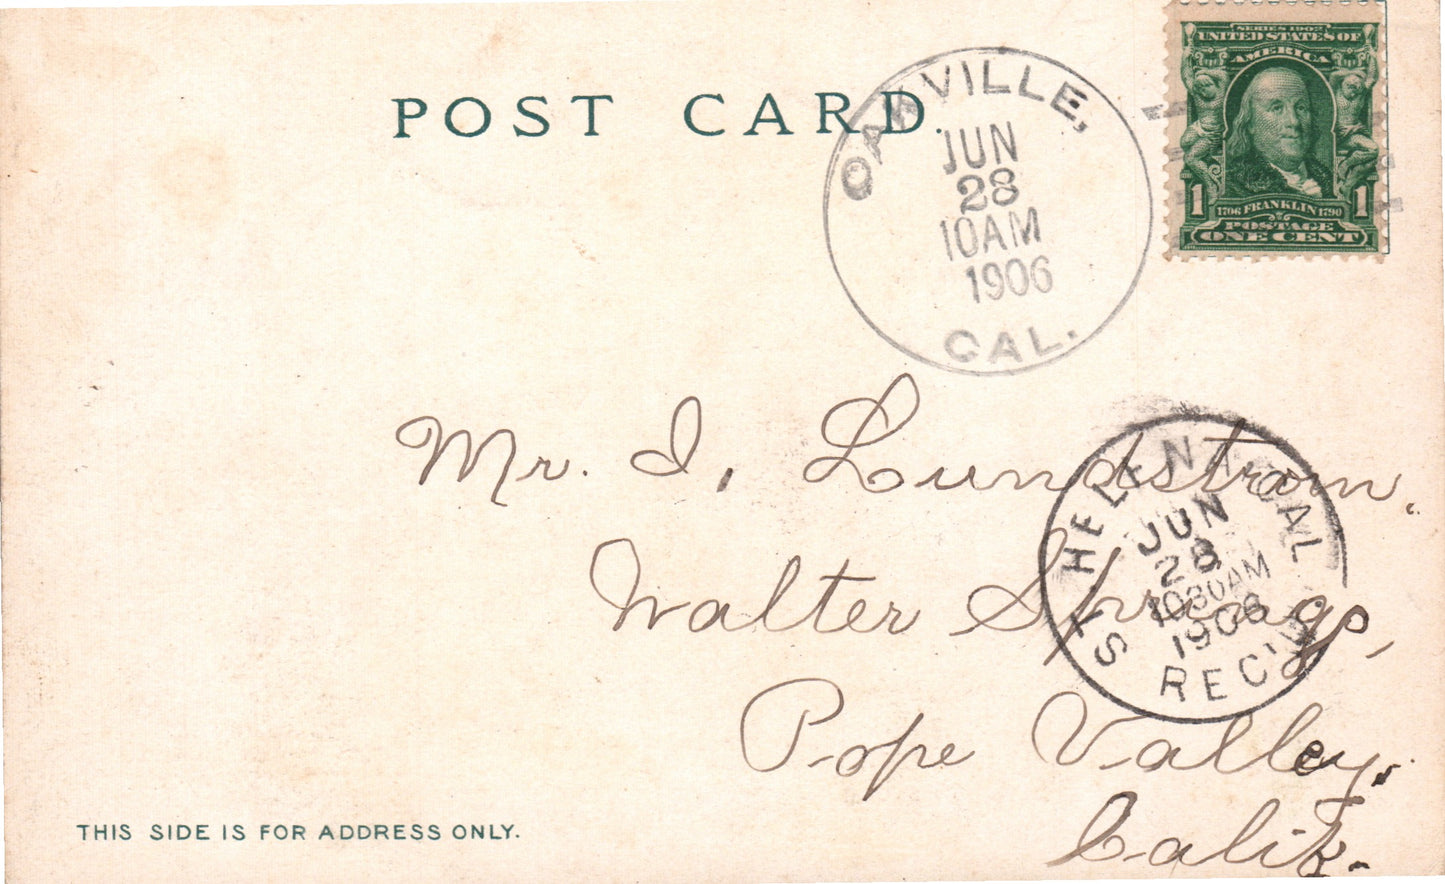 POST CARD.
OAKVILLE,
JUN
28
10AM
1906
CAL.
SERIES 1902
UNITED STATES OF
AMERICA
1 1706 FRANKLIN 1790 1
POSTAGE
ONE CENT
Mr. I. Lundstrom.
Walter Springs,
Pope Valley,
Calif.
ST. HELENA, CAL
JUN
28
1030AM
1906
REC'D
THIS SIDE IS FOR ADDRESS ONLY.